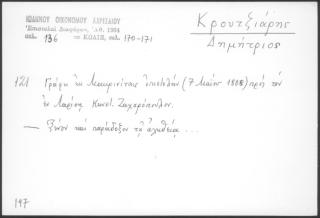 ΙΩΑΝΝΟΥ ΟΙΚΟΝΟΜΟΥ ΛΑΡΙΣΑΙΟΥ
Ἐπιστολαὶ Διαφόρων, Ἀθ. 1964
σελ. 136 = ΚΩΔΙΞ, σελ. 170-171
Κρουτζιάρης
Δημήτριος
121 Γράφει ἐκ Μακρινίτσης ἐπιστολὴν (7 Μαΐου 1808) πρὸς τὸν
ἐν Λαρίσῃ Κωνστ. Ζαχαρόπουλον.
— Ξένον καὶ παράδοξον τῇ ἀληθείᾳ ...
197